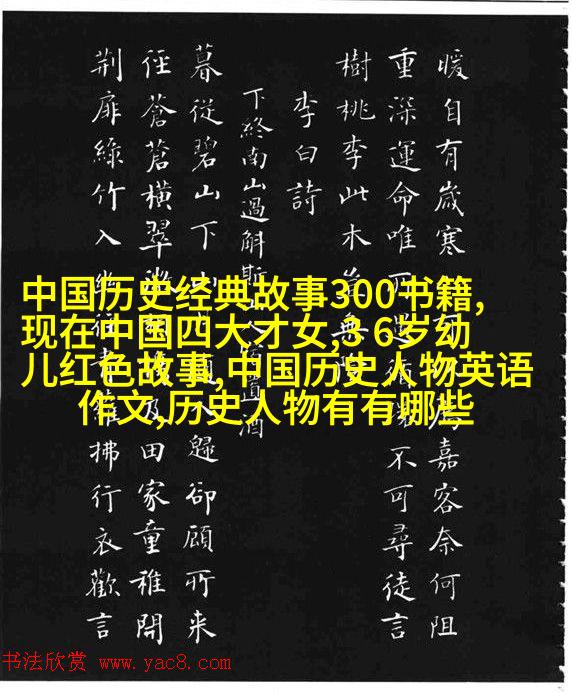 中国历史经典故事300书籍,
现在中国四大才女,3 6岁幼
儿红色故事,中国历史人物英语
作文,历史人物有有哪些
暖自有歲寒嘉客奈何阻
重深運命唯不可尋徒言
樹桃李此木
李白詩
下終南山過斛斯酒
暮從碧山下歸卻顧所来
徑蒼蒼橫翠及田家童稚開
荊扉綠竹入蘿拂行衣歡言
书法欣赏 www.yac8.com